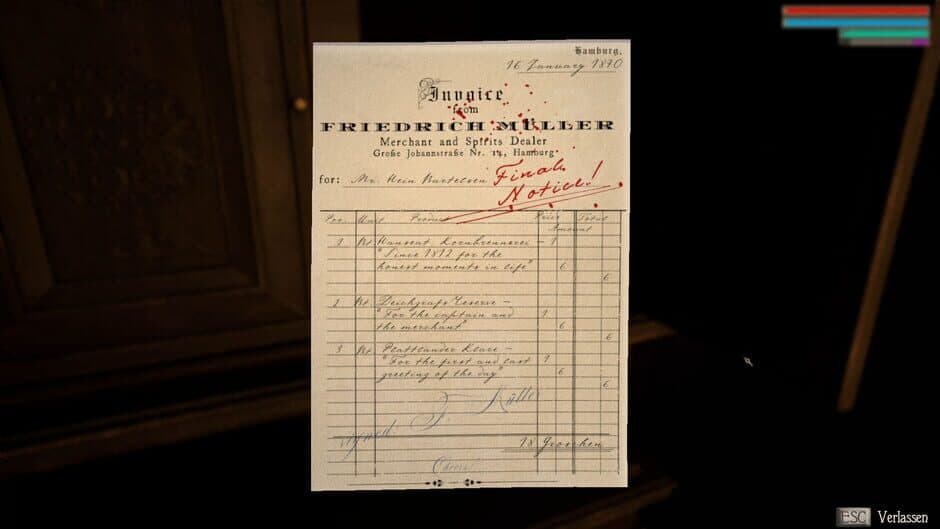 Hamburg,
16 January 1890
Invoice
from
FRIEDRICH MÜLLER
Merchant and Spirits Dealer
Große Johannstraße Nr. 14, Hamburg
for: Mr. Hein Bartelsen
Final
Notice!
Pos Unit Product Price Total
Amount
1 Bt. Hanseat Kornbrennerei – 1
"Since 1812 for the
honest moments in life" 6
6
2 Bt. Deichgrafs Reserve –
"For the captain and 1
the merchant" 6
6
3 Bt. Plattlander Klare –
"For the first and last 1
greeting of the day" 6
6
signed F. Müller
18 Groschen
ESC Verlassen